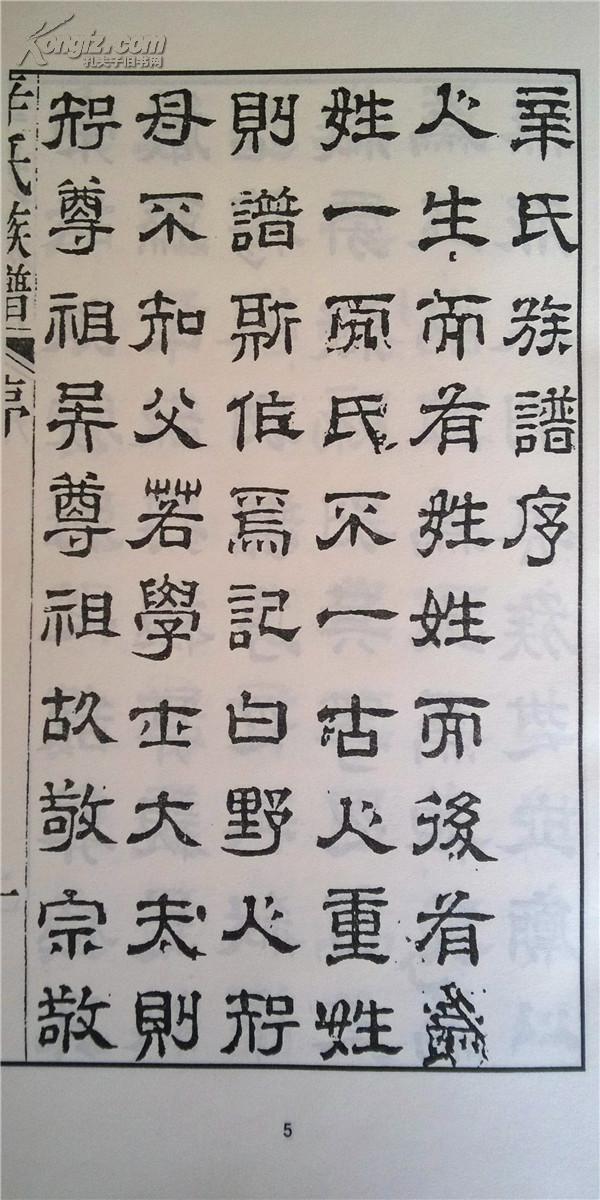 Kongfz.com
孔夫子旧书网
辛氏族譜序
人生而有姓姓而後有
姓一而氏不一古人重姓
則譜斯作焉記曰野人知
母不知父若學士大夫則
知尊祖矣尊祖故敬宗敬
辛氏族譜 序 一
5